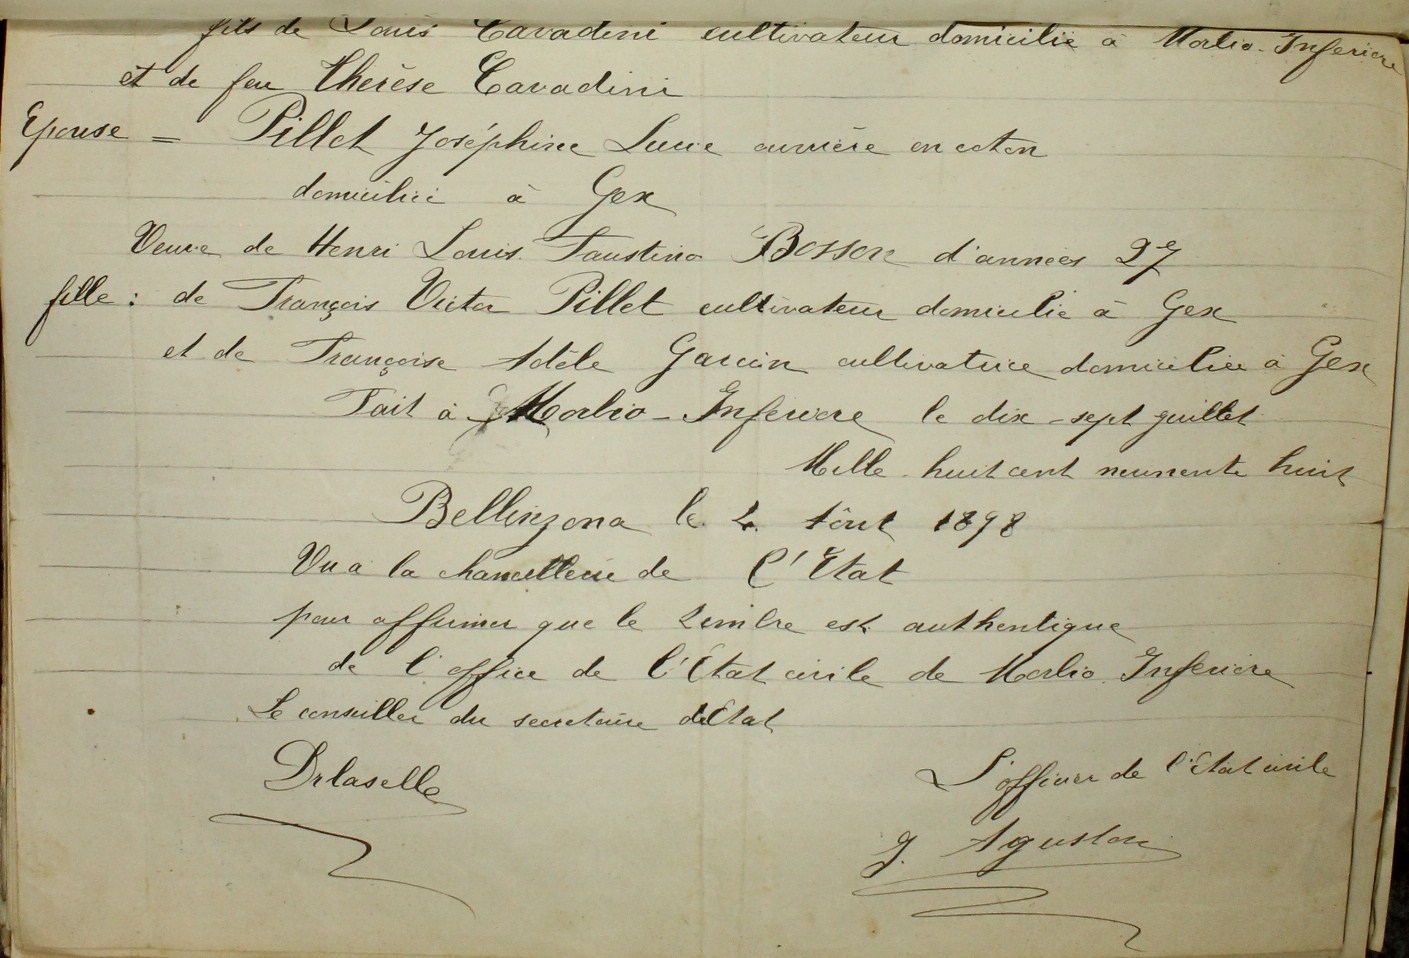 fils de Louis Cavadini cultivateur domicilié à Morbio-Inferiore
et de feu Therèse Cavadini
Epouse = Pillet Joséphine Lucie ouvrière en coton
domicilié à Gex
Veuve de Henri Louis Faustino Bosson d'années 27
fille : de François Victor Pillet cultivateur domicilié à Gex
et de Françoise Adèle Garcin cultivatrice domiciliée à Gex
Fait à Morbio-Inferiore le dix-sept juillet
Mille huit cent neunente huit
Bellinzona le 2 Aôut 1898
Vu à la chancellerie de l'Etat
pour affirmer que le timbre est authentique
de l'office de l'Etat civile de Morbio Inferiore
Le conseiller du secretaire d'Etat
L'officier de l'Etat civile
Delaselle
J. Agustoni